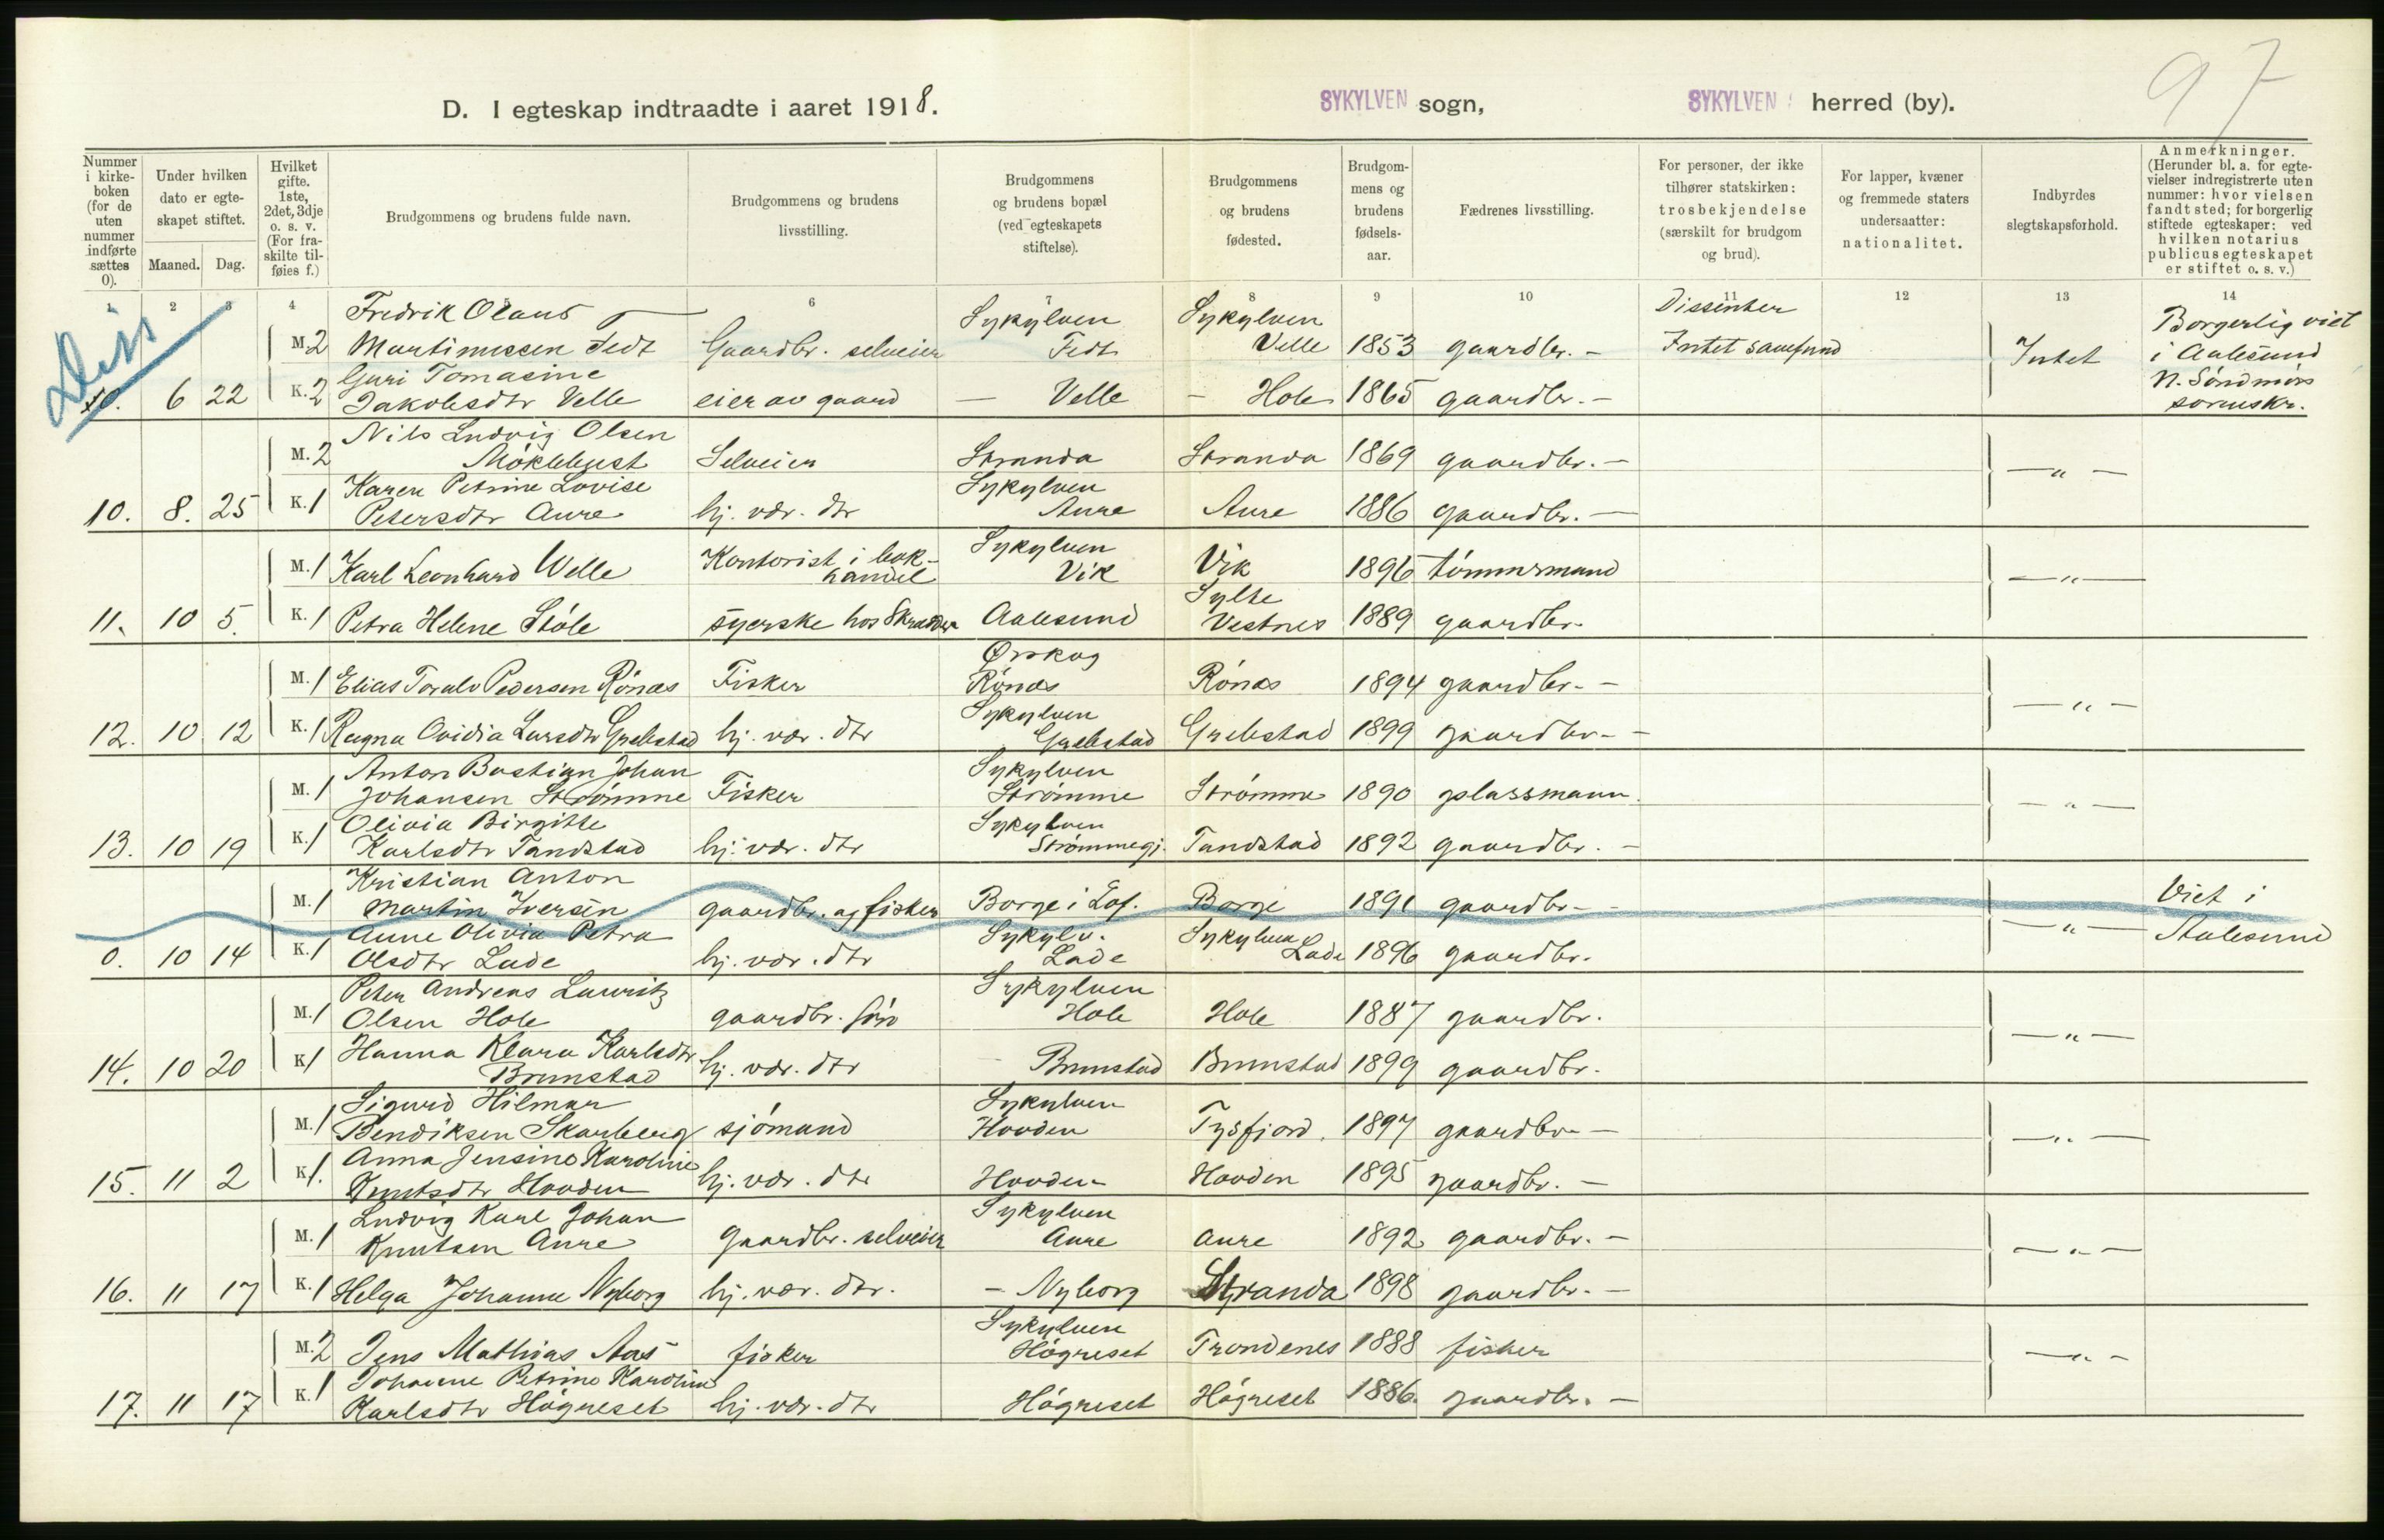 97
D. I egteskap indtraadte i aaret 1918. SYKYLVEN sogn, SYKYLVEN herred (by).
Nummer i kirke-boken (for de uten nummer indførte sættes 0).
Under hvilken dato er egte-skapet stiftet.
Maaned. Dag.
Hvilket gifte. 1ste, 2det, 3dje o. s. v. (For fra-skilte til-føies f.)
Brudgommens og brudens fulde navn.
Brudgommens og brudens livsstilling.
Brudgommens og brudens bopæl (ved egteskapets stiftelse).
Brudgommens og brudens fødested.
Brudgom-mens og brudens fødsels-aar.
Fædrenes livsstilling.
For personer, der ikke tilhører statskirken: trosbekjendelse (særskilt for brudgom og brud).
For lapper, kvæner og fremmede staters undersaatter: nationalitet.
Indbyrdes slegtskapsforhold.
Anmerkninger. (Herunder bl. a. for egte-vielser indregistrerte uten nummer: hvor vielsen fandt sted; for borgerlig stiftede egteskaper: ved hvilken notarius publicus egteskapet er stiftet o. s. v.)
1 2 3 4 6 7 8 9 10 11 12 13 14
Diss
Fredrik Olaus Sykylven Sykylven Dissenter Borgerlig viet
M. 2 Martinussen Fedt Gaardbr. selveier Fedt Velle 1853 gaardbr. - Intet samfund Intet i Aalesund
Guri Tomasine N. Söndmörs
6 22 K. 2 Jakobsdtr Velle eier av gaard — Velle - Hole 1865 gaardbr. - sorenskr.
Nils Ludvig Olsen
M. 2 Möklebust Selveier Stranda Stranda 1869 gaardbr. - — " —
Karen Petrine Lovise Sykylven
10. 8. 25 K. 1 Petersdtr Aure hj. vær. dtr Aure Aure 1886 gaardbr. —
Kontorist i bok- Sykylven
M. 1 Karl Leonhard Welle handel Vik Vik 1896 tömmermand — " —
Sylte
11. 10 5. K. 1 Petra Helene Stöle syerske hos Skrædder Aalesund Vestnes 1889 gaardbr.
Ørskog
M. 1 Elias Toralv Pedersen Rönæs Fisker Rönæs Rönæs 1894 gaardbr. - — " —
Sykylven
12. 10. 12 K. 1 Ragna Ovidia Larsdtr Grebstad hj. vær. dtr Grebstad Grebstad 1899 gaardbr. -
Anton Bastian Johan Sykylven
M. 1 Johansen Strömme Fisker Strömme Strömme 1890 plassmann. — " —
Olivia Birgitte Sykylven
13. 10 19 K. 1 Karlsdtr Tandstad hj. vær. dtr Strømmegj. Tandstad 1892 gaardbr. -
Kristian Anton Viet i
M. 1 Martin Iversen gaardbr. og fisker Borge i Lof. Borge 1891 gaardbr. - — " — Aalesund
Anne Olivia Petra Sykylv. Sykylven
0. 10 14 K. 1 Olsdtr Lade hj. vær. dtr Lade Lade 1896 gaardbr.
Peter Andreas Lauritz Sykylven
M. 1 Olsen Hole gaardbr. sön Hole Hole 1887 gaardbr. — " —
Hanna Klara Karlsdtr
14. 10 20 K. 1 Brunstad hj. vær. dtr - Brunstad Brunstad 1899 gaardbr.
Sigurd Hilmar Sykylven
M. 1 Bendiksen Skarberg sjömand Hovden Tysfjord. 1897 gaardbr. — — " —
Anna Jensine Karoline
15. 11 2 K. 1. Knutsdtr Hovden hj. vær. dtr Hovden Hovden 1895 gaardbr. —
Ludvig Karl Johan Sykylven
M. 1 Knutsen Aure gaardbr. selveier Aure Aure 1892 gaardbr. - — " —
16. 11 17 K. 1 Helga Johanne Nyborg hj. vær. dtr. - Nyborg Stranda 1898 gaardbr. —
Sykylven
M. 2 Jens Mathias Aas fisker Högreset Trondenes 1888 fisker — " —
Johanne Petrine Karoline
17. 11 17 K. 1 Karlsdtr Högreset hj. vær. dtr Högreset Högreset 1886. gaardbr. —